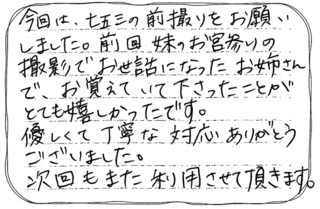 今回は、七五三の前撮りをお願い
しました。前回妹のお宮参りの
撮影でお世話になったお姉さん
で、お覚えていて下さったことが
とても嬉しかったです。
優しくて丁寧な対応ありがとう
ございました。
次回もまた利用させて頂きます。